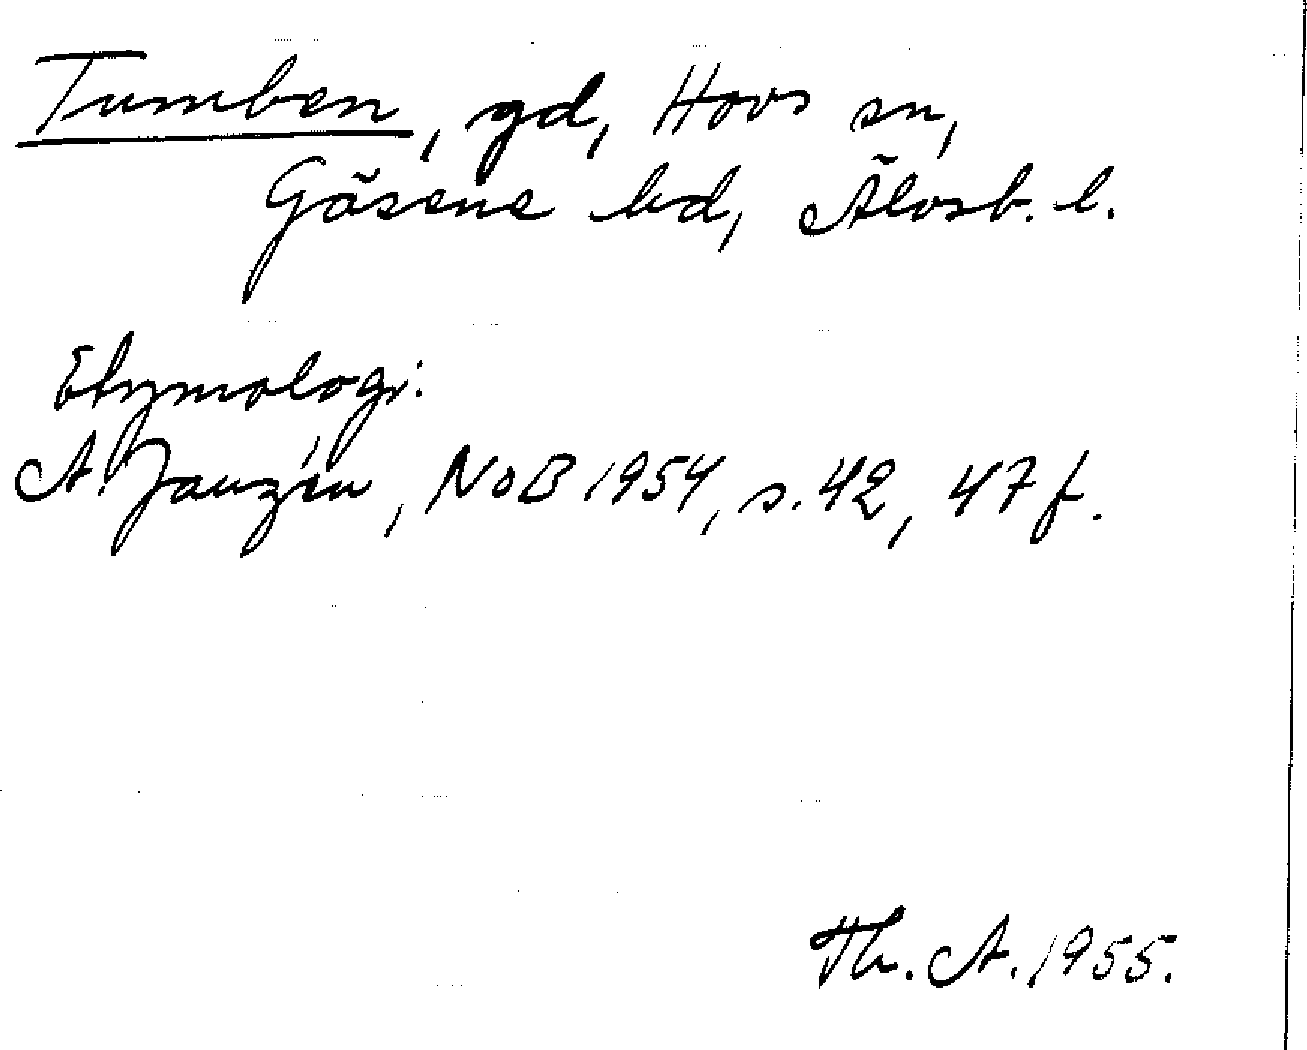 Tumben, gd, Hovs sn,
Gäsene hd, Älvsb. l.
Etymologi:
A. Janzén, NoB 1954, s. 42, 47 f.
Th. A. 1955.